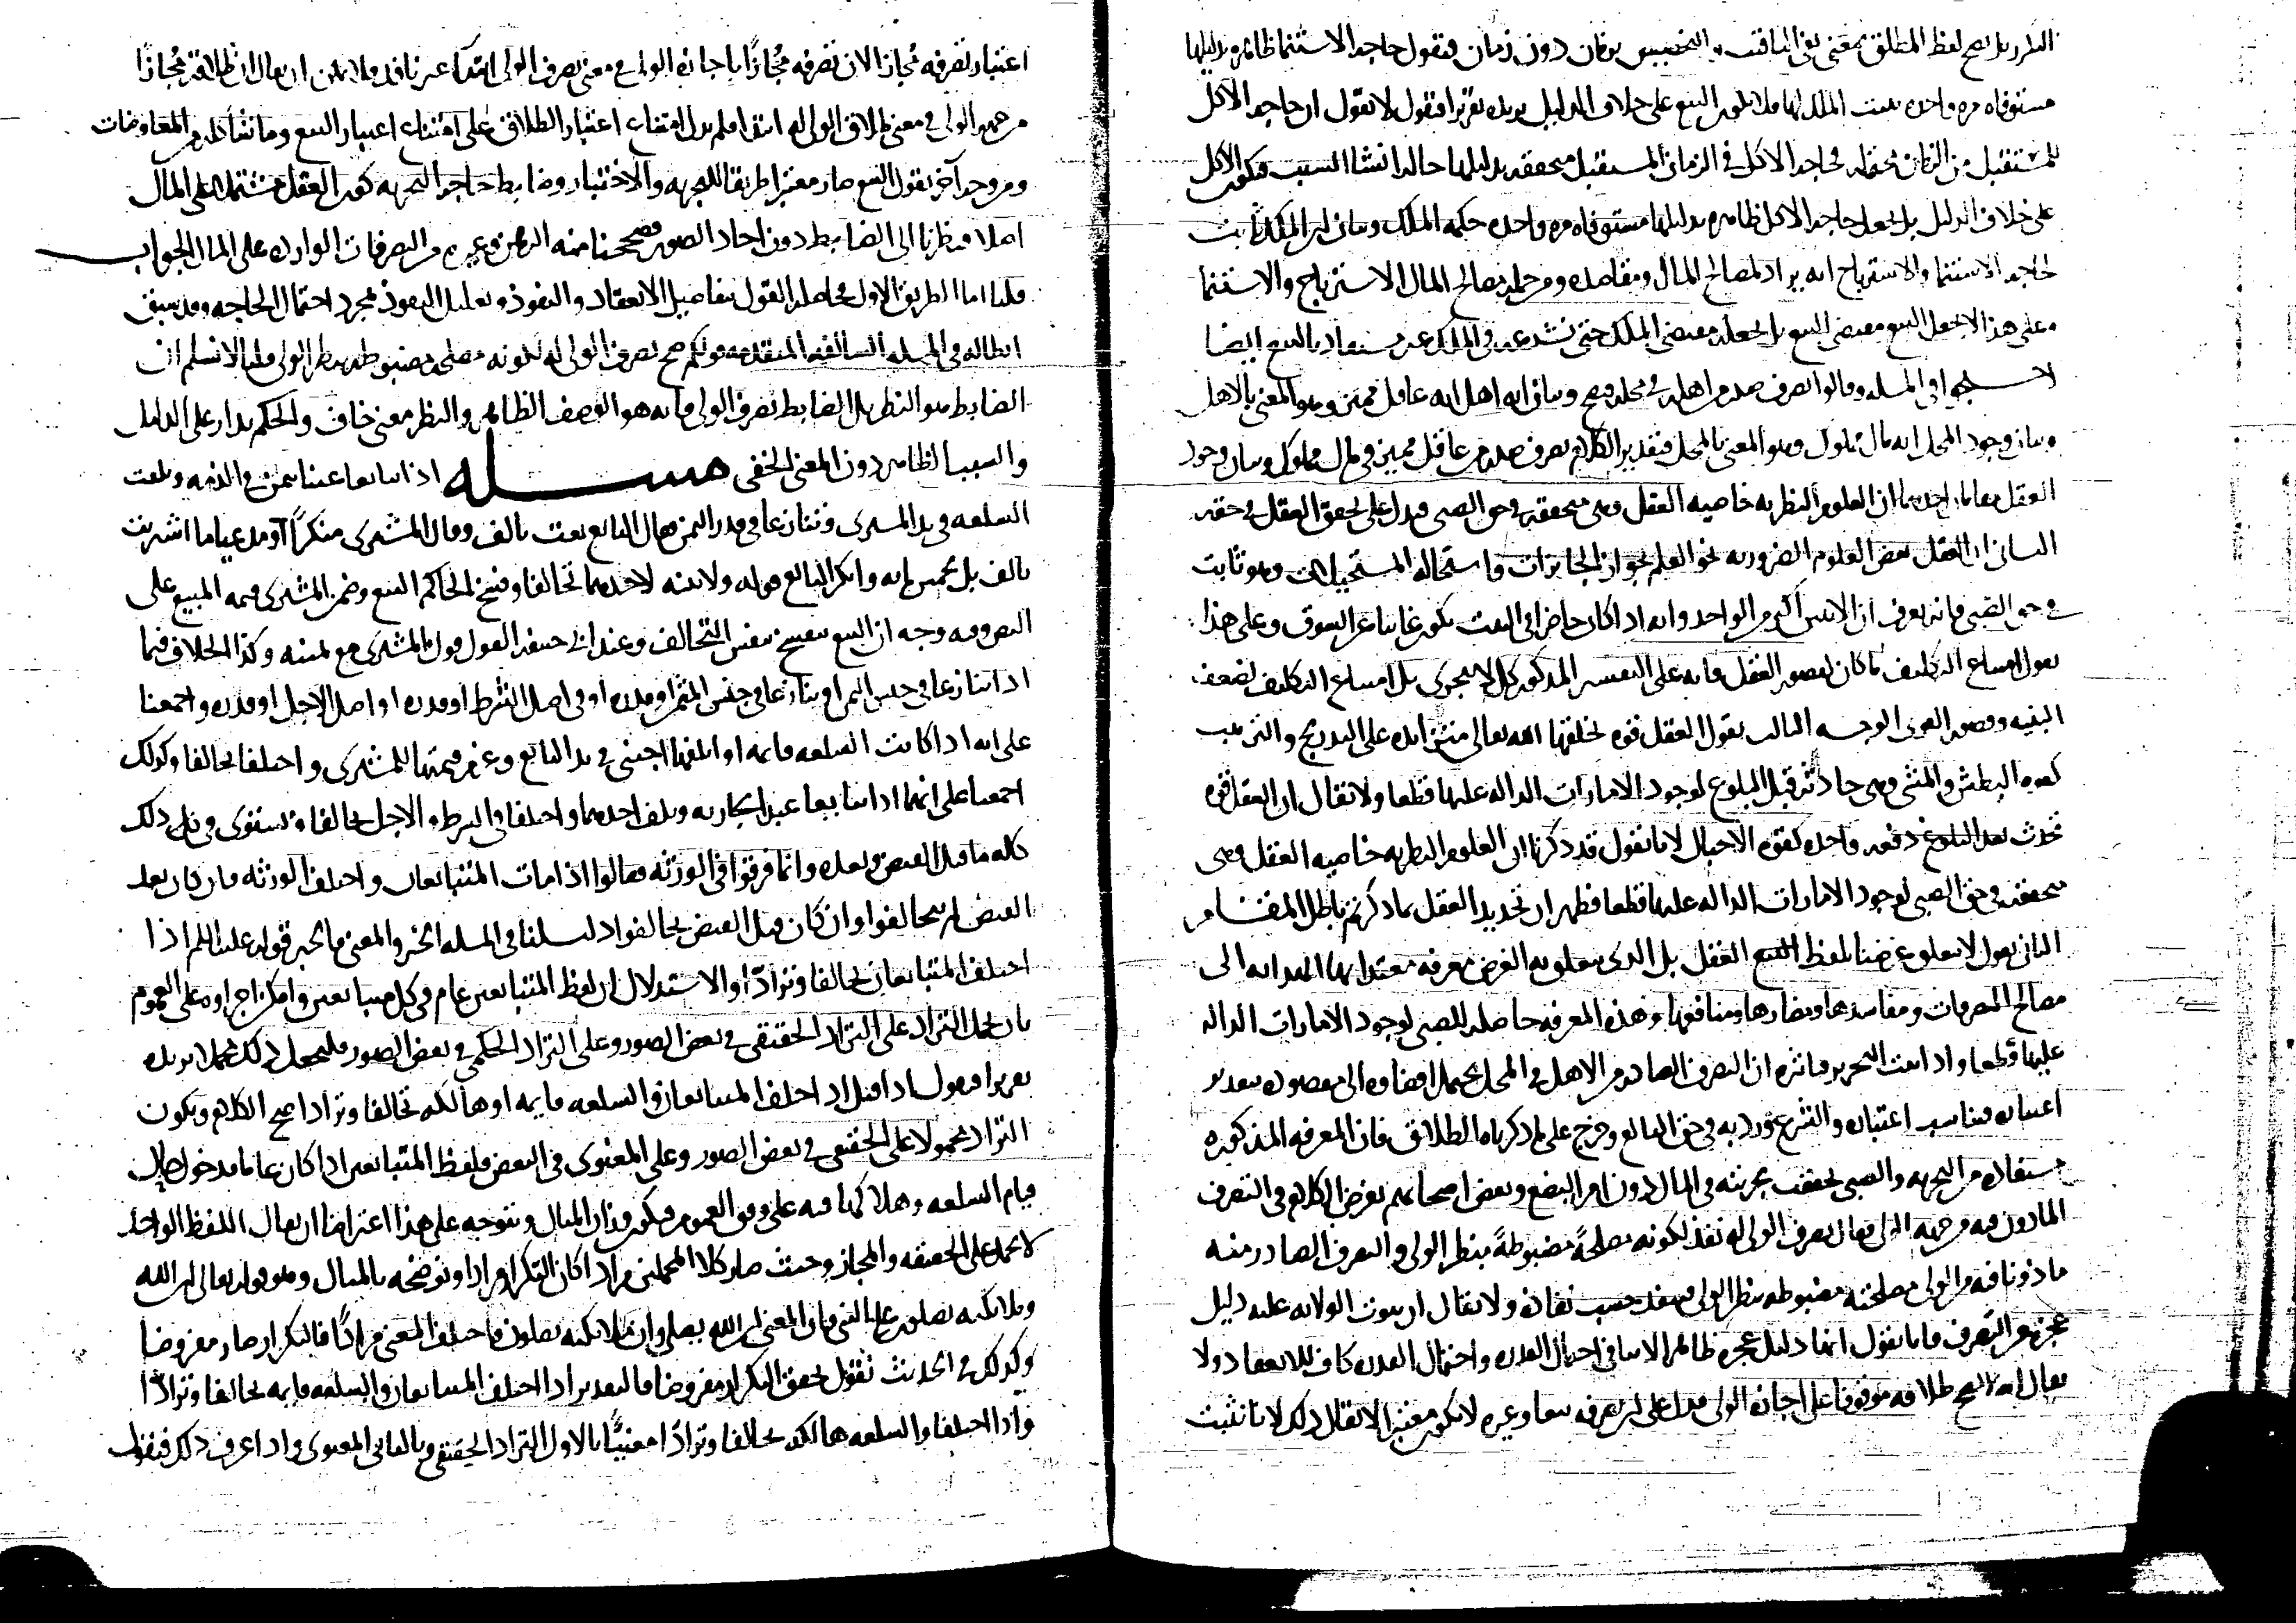 التكرر بل يصح لفظ المطلق بمعنى نفي التاقيت والتخصيص بزمان دون زمان فنقول حاجة الاستنما ظاهره بدليلها
مستوفاه مره واحده سبب الملك لها فلا يكون البيع على خلاف الدليل يزيده تقريرا فنقول لا نقول ان حاجة الاكل
للمستقبل من الزمان محققه لحاجة الاكل في الزمان المستقبل متحققه بدليلها حاله انشا السبب فيكون الاكل
على خلاف الدليل بل نجعل حاجة الاكل ظاهره بدليلها مستوفاه مره واحده حكمه الملك وبيان ان الملك ثابت
لحاجة الاستنما والاسترباح انه يراد لمصالح المال ومقاصده ومن جملة مصالح المال الاسترباح والاستنما
وعلى هذا لا نجعل البيع مقتضى البيع بل نجعله مقتضى الملك حتى في الملك غير مستفاد بالبيع ايضا
احتجوا في المسله وقالوا تصرف صدر من اهله في محله فصح وبيان انه اهل انه عاقل مميز وهو المعنى بالاهل
وبيان وجود المحل انه مال مملوك وهو المعنى بالمحل فتقدير الكلام تصرف صدر من عاقل مميز في مال مملوك وبيان وجود
العقل مقامات احدها ان العلوم النظريه خاصيه العقل وهي متحققه في حق الصبي فيدل على تحقق العقل في حقه
الثاني ان العقل بعض العلوم الضروريه نحو العلم بجواز الجايزات واستحاله المستحيلات وهو ثابت
في حق الصبي فانه يعرف ان الاثنين اكثر من الواحد وانه اذا كان حاضرا في البيت يكون غايبا عن السوق وعلى هذا
نقول امتناع التكليف ما كان لقصور العقل فانه على التفسير المذكور كل لا يتجزى بل امتناع التكليف لضعف
البنيه وقصور القوى الوجه الثالث نقول العقل قوه يخلقها الله تعالى منشاه على التدريج والترتيب
كقوه البطش والمشي وهي حادثه قبل البلوغ لوجود الامارات الداله عليها قطعا ولا يقال ان العقل قوه
تحدث بعد البلوغ دفعه واحده كقوه الاحبال لانا نقول قد ذكرنا ان العلوم النظريه خاصيه العقل وهي
متحققه في حق الصبي لوجود الامارات الداله عليها قطعا فظهر ان تحديد العقل بما ذكرتم باطل المقام
الثاني نقول لا يتعلق غرضنا بلفظ العقل بل الذي يتعلق به الغرض معرفه معتد بها الهدايه الى
مصالح التصرفات ومفاسدها ومضارها ومنافعها وهذه المعرفه حاصله للصبي لوجود الامارات الداله
عليها قطعا واذا ثبت التحرير فاثره ان التصرف الصادر من الاهل في المحل يحتمل افضاوه الى مقصوده بتقدير
اعتباره فيناسب اعتباره والشرع ورد به في حق البالغ وخرج على ما ذكرناه الطلاق فان المعرفه المذكوره
مستفاده من التجربه والصبي تحققت تجربته في المال دون امر البضع وبعض اصحابهم يفرض الكلام في التصرف
الماذون فيه من جهه الولي فقال تصرف الولي له نفذ لكونه مصلحة مضبوطة بنظر الولي والتصرف الصادر منه
ماذونا فيه من الولي مصلحته مضبوطه بنظر الولي فينفذ حسب نفاذه ولا يقال ان ثبوت الولايه عليه دليل
عجزه عن التصرف فانا نقول انما دليل عجزه ظاهرا لا ينافي احتمال القدره واحتمال القدره كاف للانعقاد ولا
يقال انه لا يصح طلاقه موقوفا على اجازه الولي فيدل على ان تصرفه بيعا وغيره لا يكون معتبرا لا نقول ذلك لانا نثبت
اعتبار تصرفه مجازا لان تصرفه مجازا باجازه الولي في معنى تصرف الولي ابتدا غير نافذ ولا يمكن ان يقال ان طلاقه مجازا
من جهه الولي في معنى طلاق الولي له ابتدا فلم يدل امتناع اعتبار الطلاق على امتناع اعتبار البيع وما شاكله من المعاوضات
ومن وجه آخر نقول البيع صار معتبرا طريقا للتجربه والاختبار وضابط حاجه التجربه كون العقد مشتملا على المال
اصلا فنظرنا الى الضابط دون احاد الصور فصححنا منه الرهن وغيره من التصرفات الوارده على المال الجواب
قلنا اما الطريق الاول فحاصله القول بتفاصيل الانعقاد والنفوذ وتعليل النفوذ بمجرد احتمال الحاجه وقد سبق
ابطاله في المسله السالفه المتقدمه قولكم صح تصرف الولي له لكونه مصلحه مضبوطه بنظر الولي قلنا لا نسلم ان
الضابط هو النظر بل الضابط تصرف الولي فانه هو الوصف الظاهر والنظر معنى خاف والحكم يدار على الدليل
والسبب الظاهر دون المعنى الخفي مسله اذا تبايعا عينا بثمن في الذمه وتلفت
السلعه في يد المشتري وتنازعا في قدر الثمن فقال البايع بعت بالف وقال المشتري منكرا او مدعيا ما اشتريت
بالف بل بخمس مايه وانكر البايع قوله ولا بينه لاحدهما تحالفا وفسخ الحاكم البيع وضمن المشتري قيمه المبيع على
النص وفيه وجه ان البيع ينفسخ بنفس التحالف وعند ابي حنيفه القول قول المشتري مع يمينه وكذا الخلاف فيما
اذا تنازعا في جنس الثمن او تنازعا في جنس المثمن او قدره او في اصل الشرط او قدره او اصل الاجل او قدره واجمعنا
على انه اذا كانت السلعه قايمه او اتلفها اجنبي في يد البايع وغرم قيمتها للمشتري واختلفا تحالفا وكذلك
اجمعنا على انهما اذا تبايعا عبدا بجاريه وتلف احدهما واختلفا في الشرط او الاجل تحالفا ويستوي في ذلك
كله ما قبل القبض وبعده وانما فرقوا في الورثه فقالوا اذا مات المتبايعان واختلف الورثه فان كان بعد
القبض لم يتحالفوا وان كان قبل القبض تحالفوا دليلنا في المسله الخبر والمعنى فالخبر قوله عليه السلم اذا
اختلف المتبايعان تحالفا وترادا والاستدلال ان لفظ المتبايعين عام في كل متبايعين وامكن اجراوه على العموم
بان يحمل التراد على التراد الحقيقي في بعض الصور وعلى التراد الحكمي في بعض الصور فليجعل ذلك محملا نزيده
تقريرا فنقول اذا قيل اذا اختلف المتبايعان والسلعه قايمه او هالكه تحالفا وترادا صح الكلام ويكون
التراد محمولا على الحقيقي في بعض الصور وعلى المعنوي في البعض ولفظ المتبايعين اذا كان عاما مدخول حال
قيام السلعه وهلاكها فيه على وفق العموم فيكون وزان المثال ويتوجه على هذا اعتراضا ان يقال اللفظ الواحد
لا يحمل على الحقيقه والمجاز وحيث صار كلا المحملين مرادا كان التكرار مرادا ونوضحه بالمثال وهو قوله تعالى ان الله
وملائكته يصلون على النبي فان المعنى ان الله يصلي وان ملائكته يصلون فاختلف المعنى مرادا فالتكرار صار مفروضا
وكذلك في الحديث نقول تحقق التكرار مفروضا فالتقدير اذا اختلف المتبايعان والسلعه قايمه تحالفا وترادا
واذا اختلفا والسلعه هالكه تحالفا وترادا معنيا بالاول التراد الحقيقي وبالثاني المعنوي واذا عرف ذلك فنقول